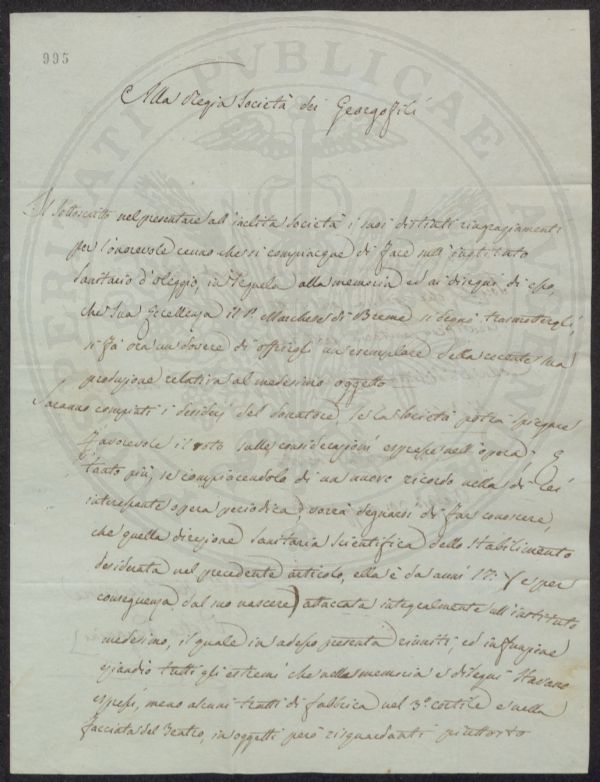 995
Alla Regia Società dei Georgofili
Il Sottoscritto nel presentare all'inclita Società i suoi distinti ringraziamenti
per l'onorevole cenno che si compiacque di fare sull'instituto
Sanitario d'Oleggio, in seguela alla memoria ed ai disegni di esso,
che Sua Eccellenza il Sr. Marchese di Breme si degnò trasmetergli,
si fà ora un dovere di offrirgli un esemplare della recente sua
produzione relativa al medesimo oggetto
Saranno compiuti i desiderj del donatore, se la Società potrà spiegare
favorevole il voto sulle considerazioni espresse nell'opera; E
tanto più, se compiacendolo di un nuovo ricordo nella di Lei
interessante opera periodica vorrà degnarsi di far conoscere,
che quella direzione Sanitaria Scientifica dello Stabilimento
desiderata nel precedente articolo, ella è da anni 17: (e per
conseguenza dal suo nascere) attaccata integralmente all'instituto
medesimo, il quale in adesso presenta riuniti, ed in funzione
eziandio tutti gli estremi che nella memoria e disegni stavano
espressi, meno alcuni tratti di fabbrica nel 3º cortile e nella
facciata del Teatro, in oggetti però risguardanti piuttosto
PROSPERITATI PVBLICAE